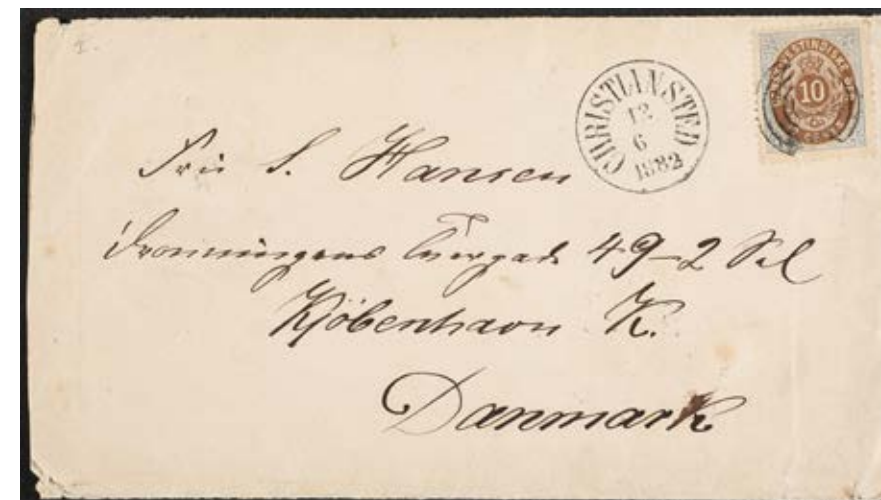 I.
CHRISTIANSTED
12
6
1882
10
Fru S. Hansen
Dronningens Tvergade 49-2 Sal
Kjöbenhavn K.
Danmark